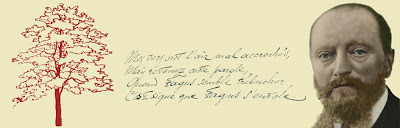 Mes vers ont l'air mal accrochés,
Mais retenez cette parole,
Quand Fagus semble trébucher,
C'est signe que Fagus s'envole.